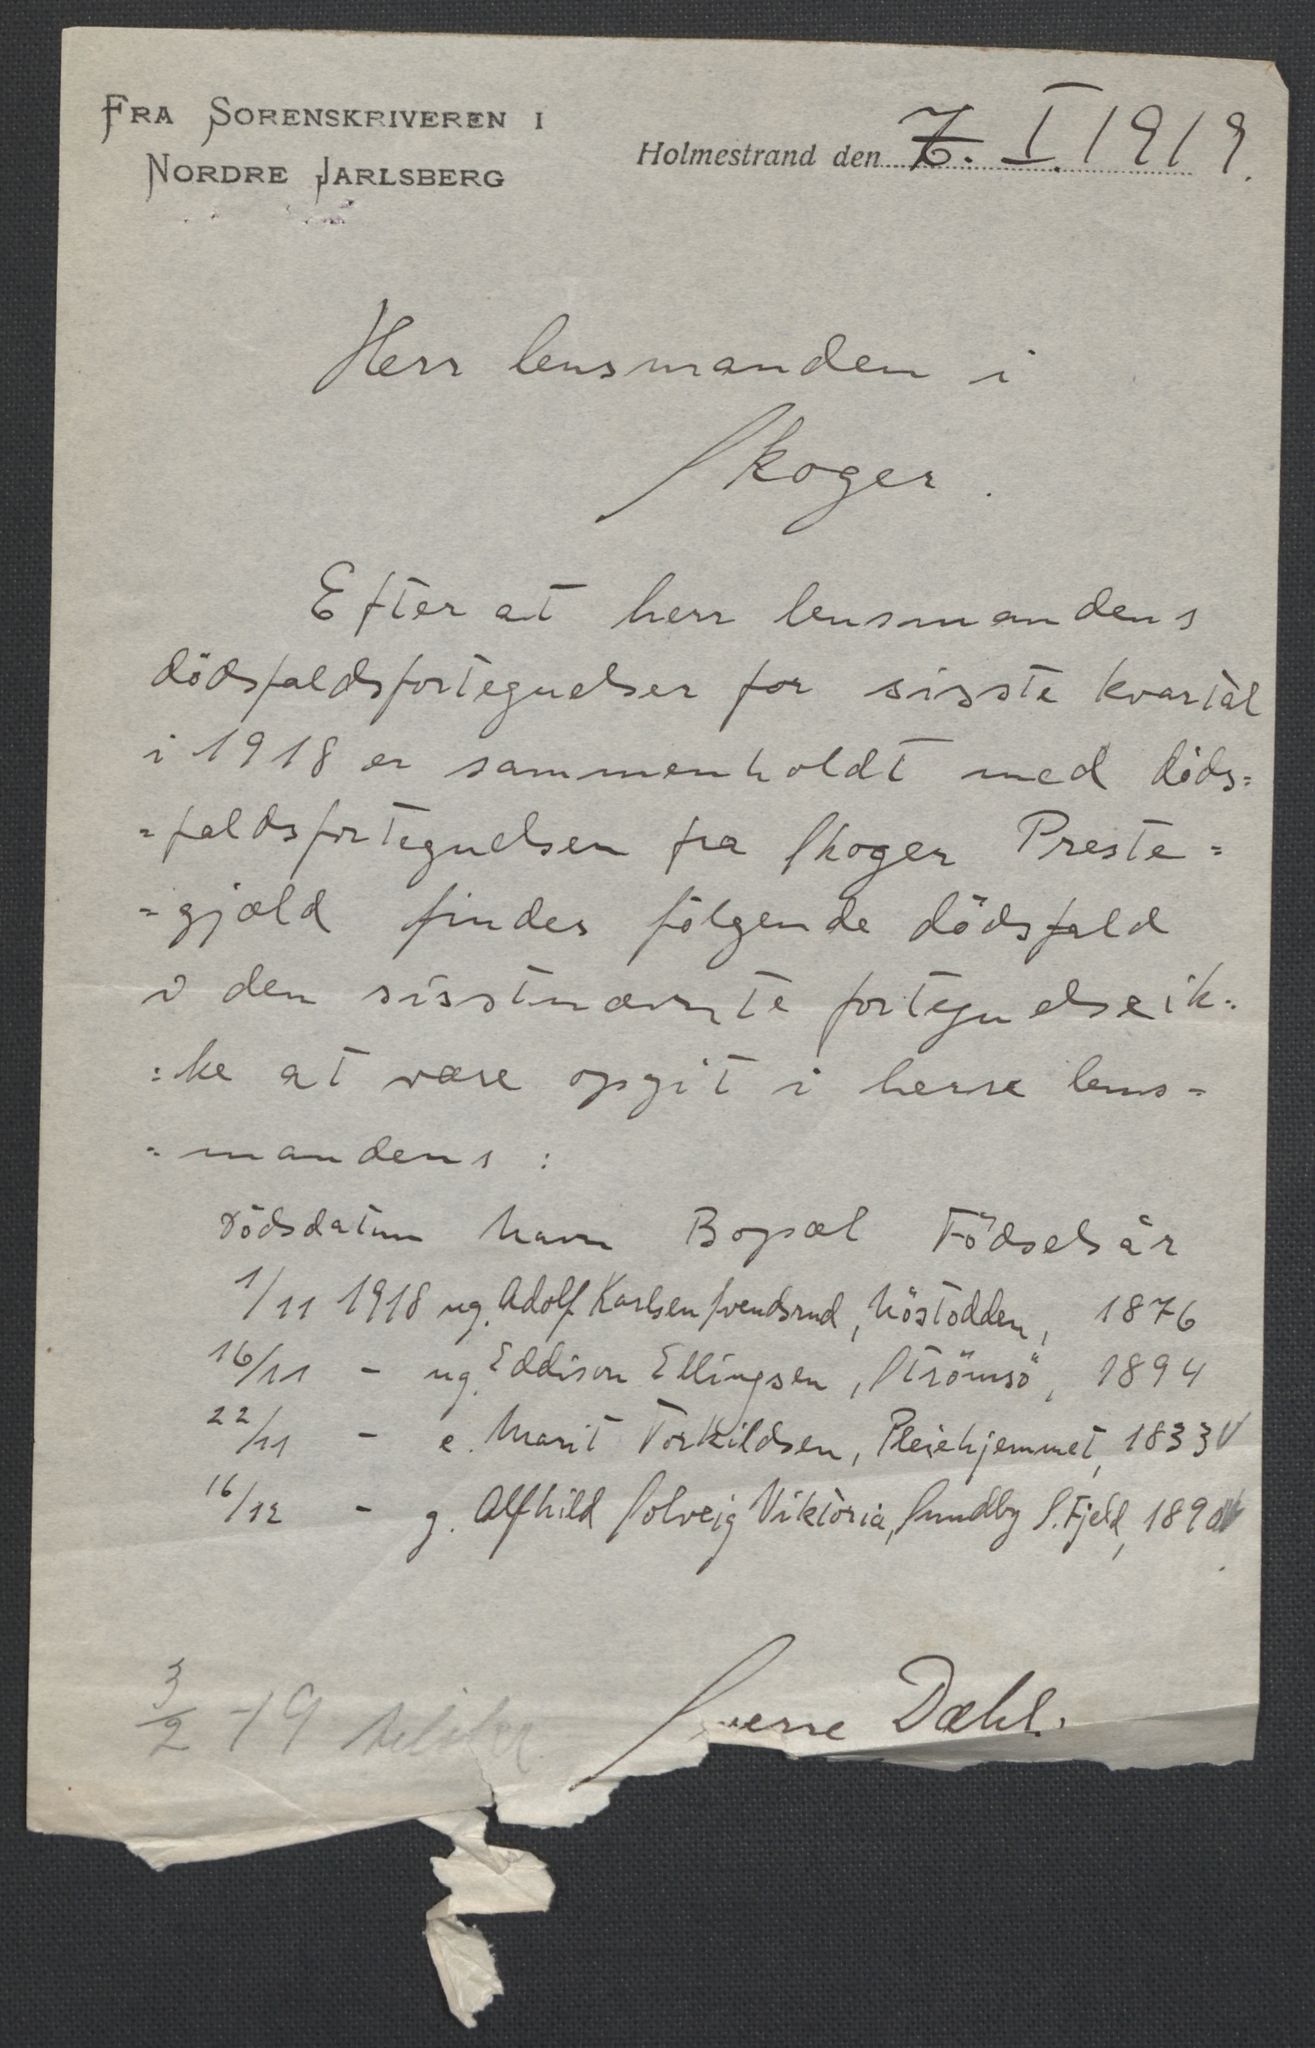 FRA SORENSKRIVEREN I
NORDRE JARLSBERG
Holmestrand den 7. I. 1919.
Herr lensmanden i
Skoger.
Efter at herr lensmandens
dödsfaldsfortegnelser for sisste kvartal
i 1918 er sammenholdt med döds=
=faldsfortegnelsen fra Skoger Preste=
=gjæld findes fölgende dödsfald
i den sisstnævnte fortegnelse ik=
=ke at være opgit i herr lens=
=mandens:
Dödsdatum Navn Bopæl Födselsår
1/11 1918 ug. Adolf Karlsen Svendsrud, Nöstodden, 1876
16/11 - ug. Eddison Ellingsen, Strömsö, 1894
22/11 - e. Marit Torkildsen, Pleiehjemmet, 1833
16/12 - g. Alfhild Solveig Viktoria, Sundby S. Fjeld, 1890
Sverre Dæhl.
3/2 - 19